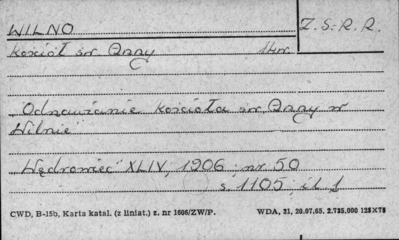 WILNO
Z.S.R.R.
Kościół św. Anny
"Odnawianie kościoła św. Anny w
Wilnie"
"Wędrowiec" XLIV, 1906, nr. 50
s. 1105, il. 1
CWD, B-15b, Karta katal. (z liniat.) z. nr 1606/ZW/P. WDA, 31, 20.07.65. 2.735.000 125X75